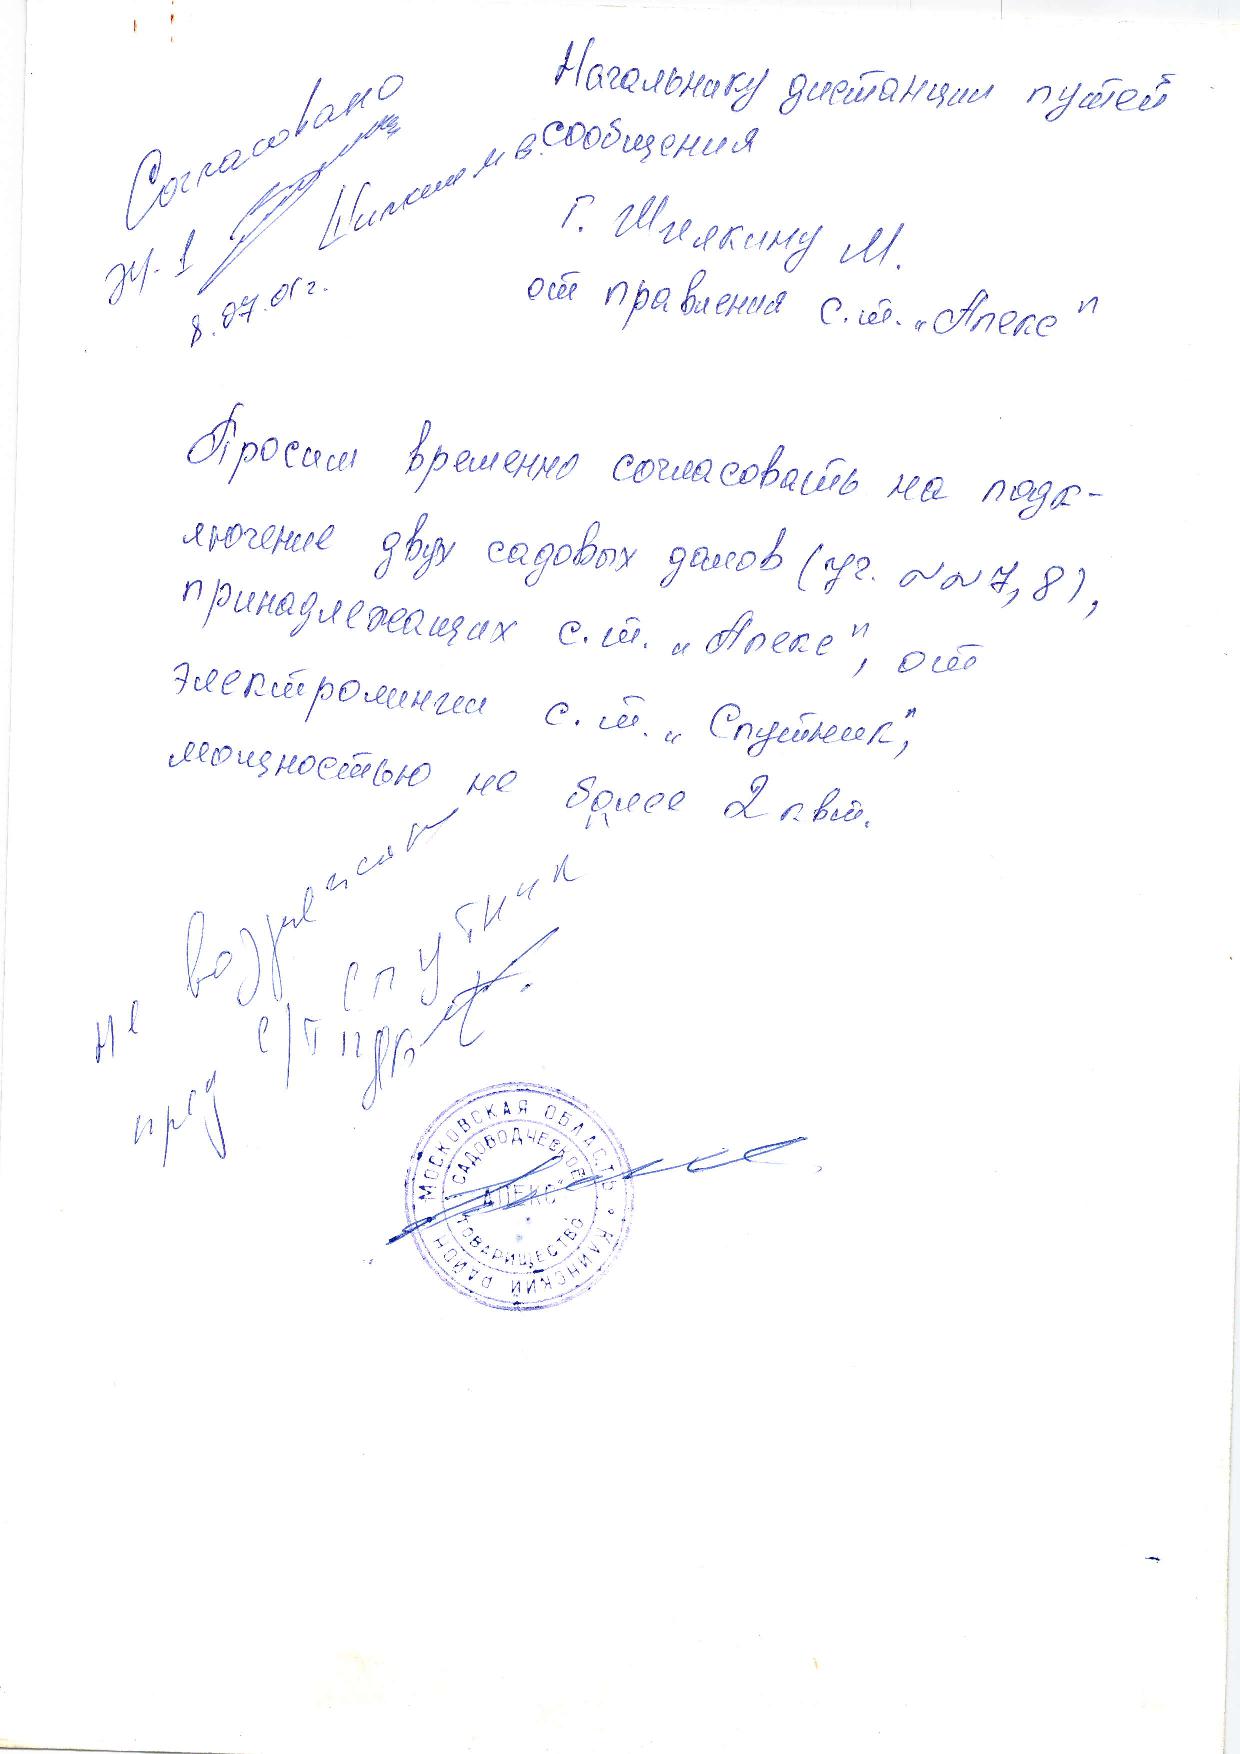 Согласовано
эч-1
8.07.01г.
Начальнику дистанции путей
сообщения
Г. Шпилкину М.
от правления с.т. „Апекс"
Просим временно согласовать на подк-
лючение двух садовых домов (уч. ~~7, 8),
принадлежащих с.т. „Апекс", от
электролинии с.т. „Спутник",
мощностью не более 2 квт.
не возражаем
пред с/т Спутник"
МОСКОВСКАЯ ОБЛАСТЬ • КЛИНСКИЙ РАЙОН
САДОВОДЧЕСКОЕ
„АПЕКС"
ТОВАРИЩЕСТВО